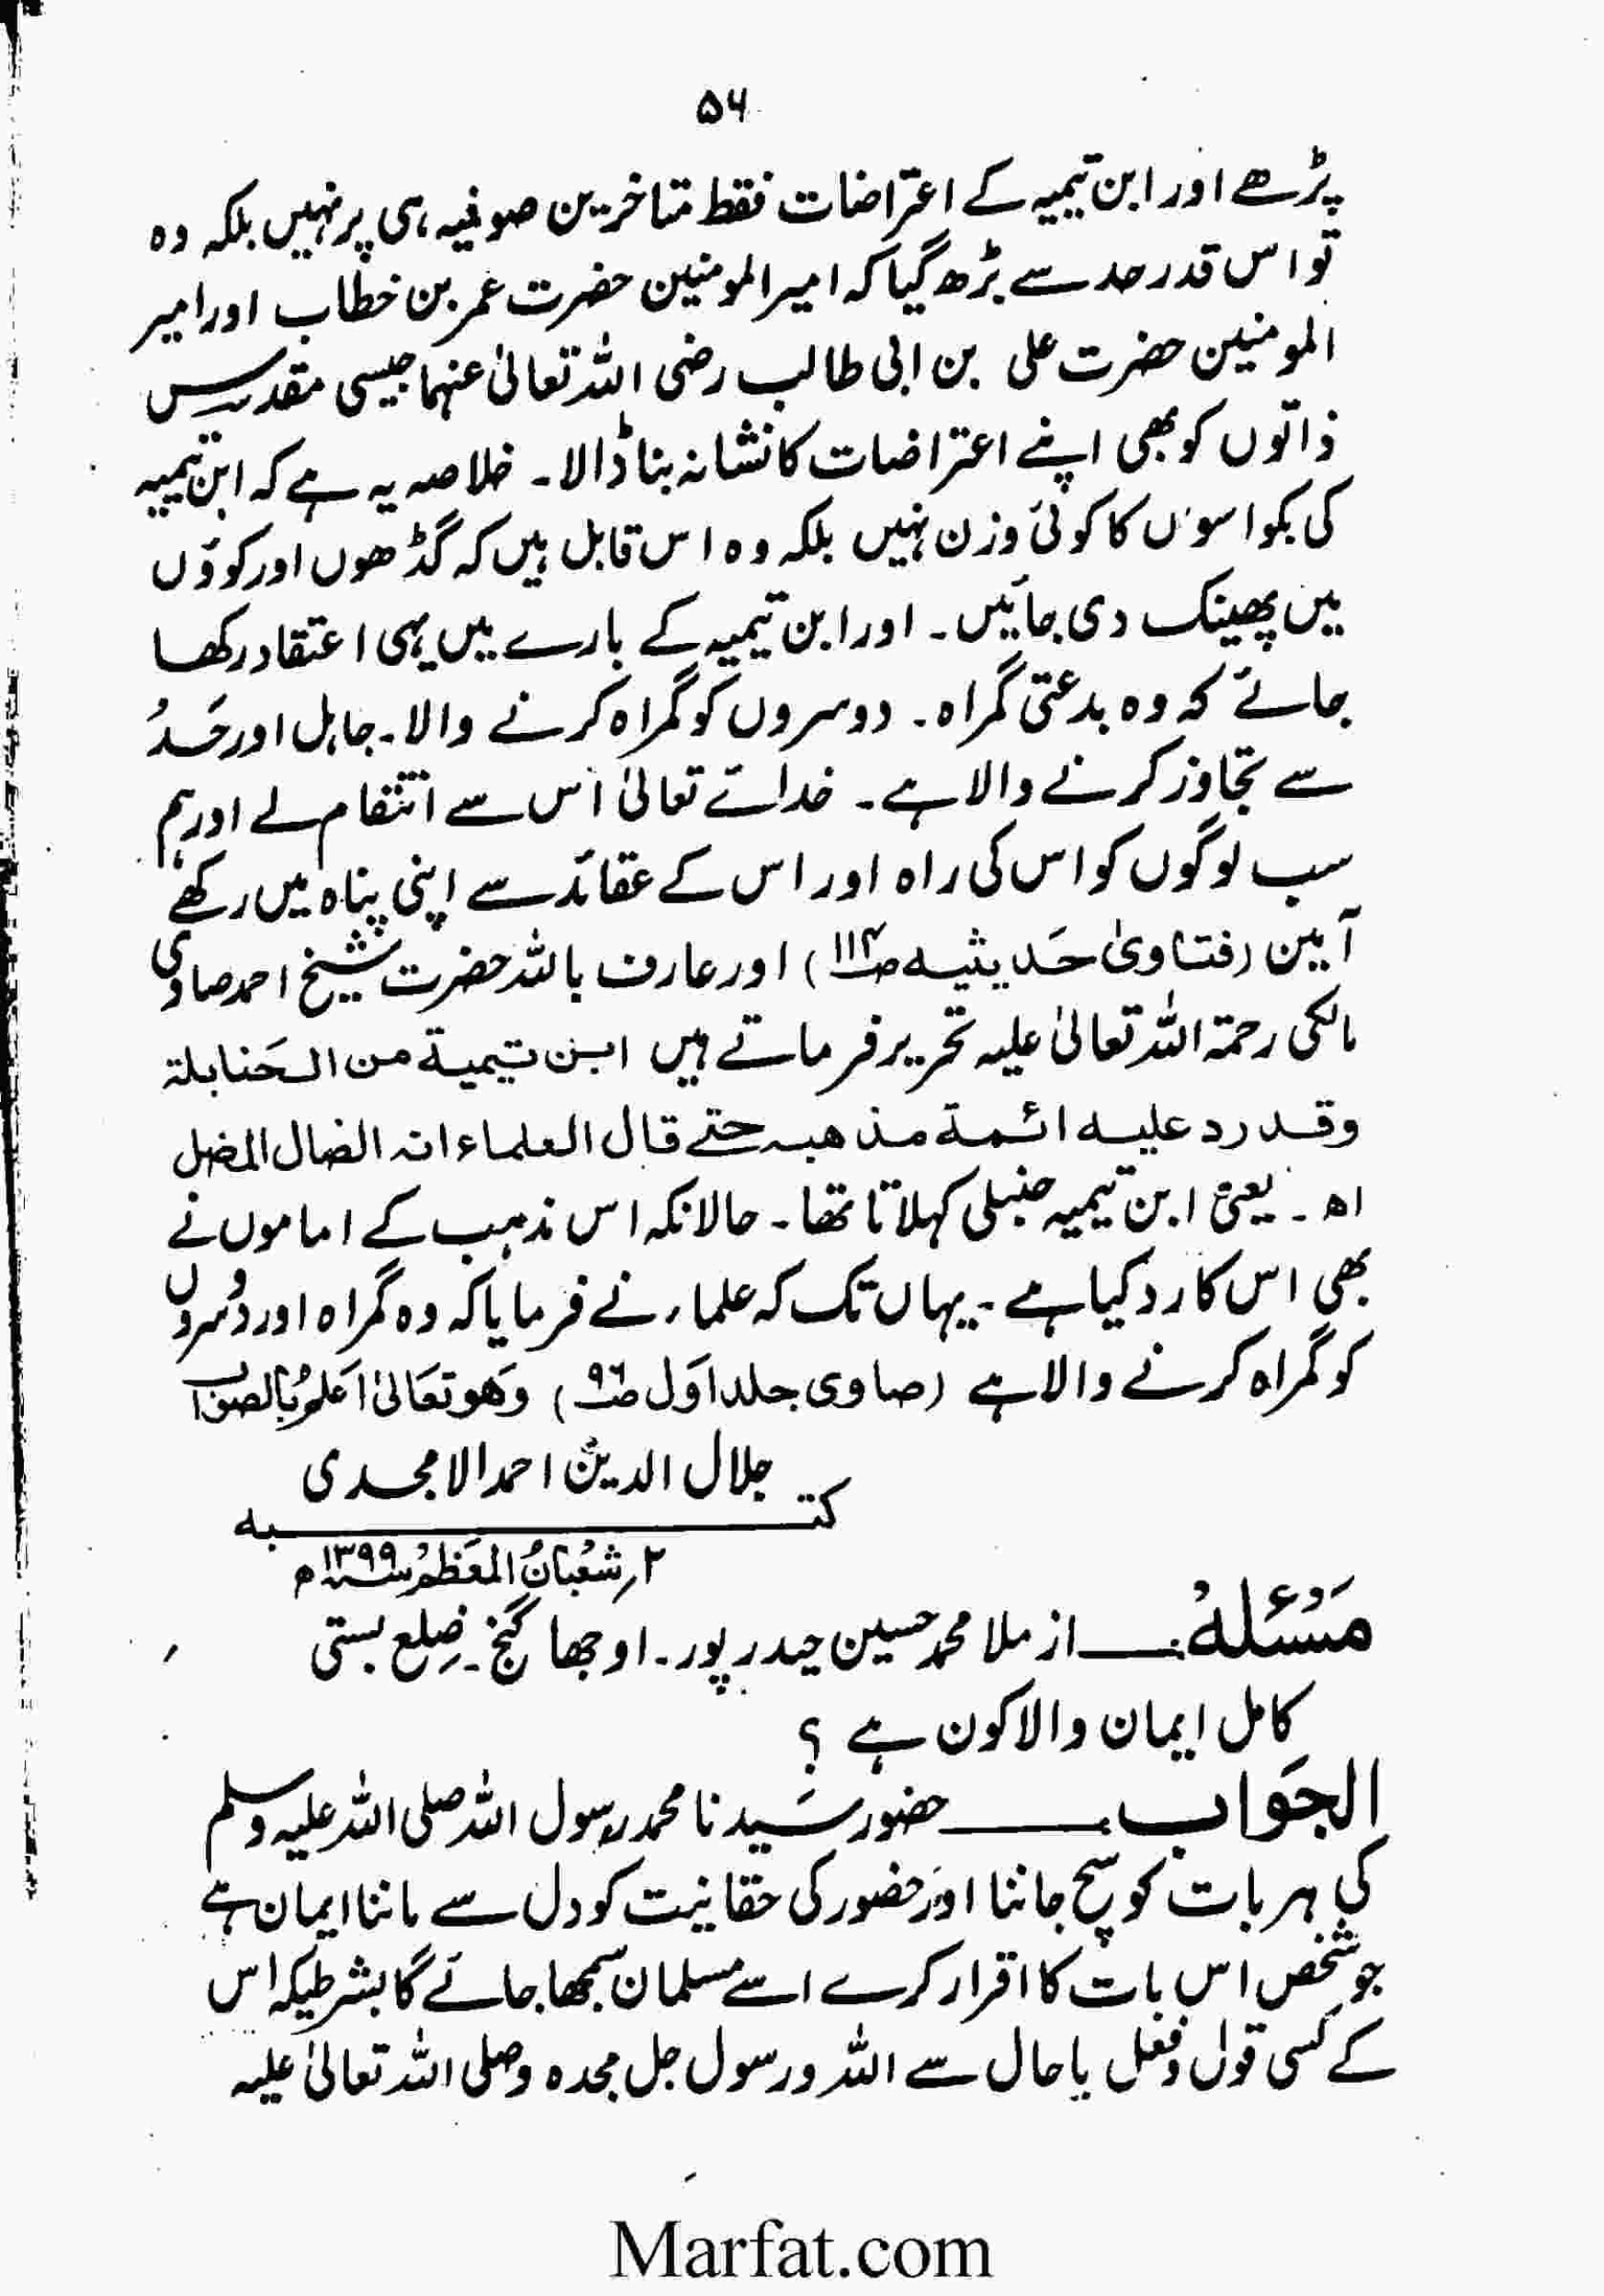 ۵۶
پڑھے اور ابن تیمیہ کے اعتراضات فقط متاخرین صوفیہ ہی پر نہیں بلکہ وہ
تو اس قدر حد سے بڑھ گیا کہ امیر المومنین حضرت عمر بن خطاب اور امیر
المومنین حضرت علی بن ابی طالب رضی اللہ تعالیٰ عنہما جیسی مقدس
ذاتوں کو بھی اپنے اعتراضات کا نشانہ بنا ڈالا۔ خلاصہ یہ ہے کہ ابن تیمیہ
کی بکواسوں کا کوئی وزن نہیں بلکہ وہ اس قابل ہیں کہ گڈھوں اور کوؤں
میں پھینک دی جائیں۔ اور ابن تیمیہ کے بارے میں یہی اعتقاد رکھا
جائے کہ وہ بدعتی گمراہ۔ دوسروں کو گمراہ کرنے والا۔ جاہل اور حَد
سے تجاوز کرنے والا ہے۔ خدائے تعالیٰ اس سے انتقام لے اور ہم
سب لوگوں کو اس کی راہ اور اس کے عقائد سے اپنی پناہ میں رکھے
آمین (فتاویٰ حَدیثیہ ص۱۱۴) اور عارف باللہ حضرت شیخ احمد صاوی
مالکی رحمۃ اللہ تعالیٰ علیہ تحریر فرماتے ہیں ابن تیمیة من الحَنابلة
وقد رد علیہ ائمة مذھبہ حتے قال العلماء انہ الضال المضل
اھ۔ یعنی ابن تیمیہ حنبلی کہلاتا تھا۔ حالانکہ اس مذہب کے اماموں نے
بھی اس کا رد کیا ہے۔ یہاں تک کہ علماء نے فرمایا کہ وہ گمراہ اور دوسروں
کو گمراہ کرنے والا ہے (صاوی جلد اوَل ص۹۶) وَھو تعَالیٰ اَعلمُ بالصوَاب
جلال الدین احمد الامجدی
کتبہ
۲؍ شعبانُ المعَظم ۱۳۹۹ھ
مَسْئلہُ: از ملا محمد حسین حیدر پور۔ اوجھا گنج۔ ضِلع بستی
کامل ایمان والا کون ہے ؟
الجَوَاب: حضور سَیدنا محمد رسول اللہ صلی اللہ علیہ وسلم
کی ہر بات کو سچ جاننا اور حضور کی حقانیت کو دل سے ماننا ایمان ہے
جو شخص اس بات کا اقرار کرے اسے مسلمان سمجھا جائے گا بشرطیکہ اس
کے کسی قول و فعل یا حال سے اللہ و رسول جل مجدہ وصلی اللہ تعالیٰ علیہ
Marfat.com